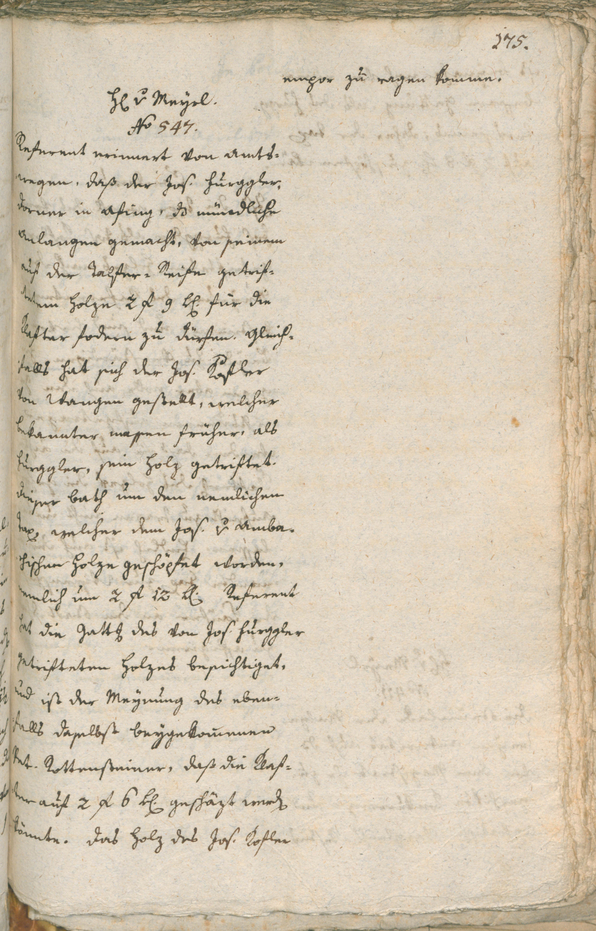 175.
empor zu ragen komme.
H. v Mayrl.
No 547.
Referent erinnert von amts-
wegen, daß der Jos. Hurggler,
Dorner in Afing, das mündliche
Anlangen gemacht, von seinem
auf der Talfer-Reife getrif-
tetem Holze 2 f 9 kr für die
Klafter fodern zu dürfen. Gleich-
falls hat sich der Jos. Kofler
von Wangen gestellt, welcher
bekannter massen früher, als
Hurggler, sein Holz getriftet.
dieser bath um den nemlichen
Tax, welcher dem Jos. v
Holze geschöpfet worden,
nemlich um 2 f 12 kr. Referent
hat die Gattg des von Jos Hurggler
getrifteten Holzes besichtiget,
und ist der Meynung des eben-
falls daselbst beygekommenen
Rottensteiner, daß die Klaf-
ter auf 2 f 6 kr geschäzt werden
könnte. das Holz des Jos. Kofler